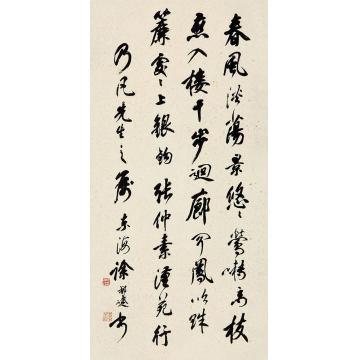 春風淡蕩景悠〻鶯囀高枝
燕入樓十步迴廊聞鳳吹珠
簾處〻上銀鉤張仲素漢苑行
乃凡先生之屬 東海徐書